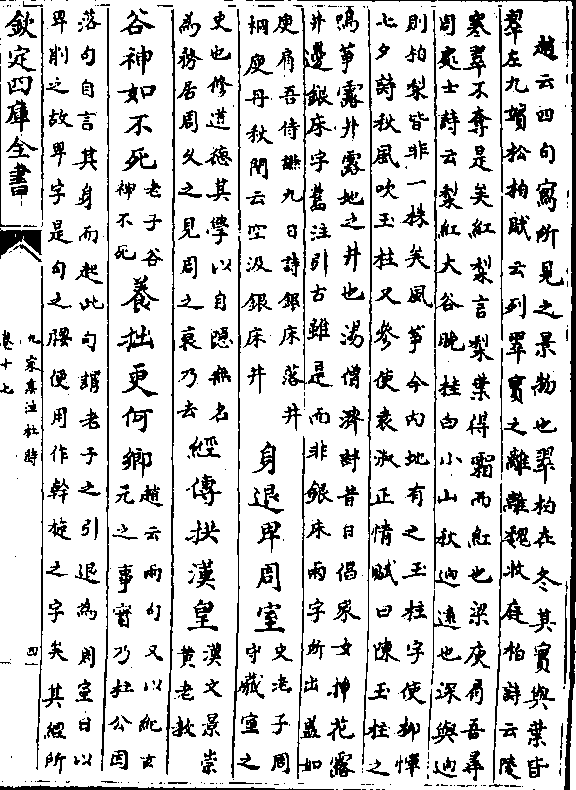 趙云四句寫所見之景物也翠柏在冬其實與葉皆
翠左九嬪松柏賦云列翠實之離離魏收庭柏詩云陵
寒翠不奪是矣紅梨言梨葉得霜而紅也梁庾肩吾尋
周處士詩云梨紅大谷晚桂白小山秋迥遠也深與迥
則柏梨皆非一株矣風箏今内地有之玉柱字使柳惲
七夕詩秋風吹玉柱又參使袁淑正情賦曰陳玉柱之
鳴箏露井露地之井也湯僧濟詩昔日倡家女摘花露
井邊銀床字舊注引古雖是而非銀床兩字所出蓋如
庾肩吾侍讌九日詩銀床落井
桐庾丹秋閨云空汲銀床井
身退卑周室
史老子周
守藏室之
史也修道德其學以自隱無名
為務居周久之見周之衰乃去
經傳拱漢皇
漢文景崇
黃老教
谷神如不死
老子谷
神不死
養拙更何鄉
趙云兩句又以紀玄
元之事實乃杜公因
落句自言其身而起此句謂老子之引退為周室日以
卑削之故卑字是句之腰便用作幹旋之字矣其經所
欽定四庫全書
九家集注杜詩
卷十七
四